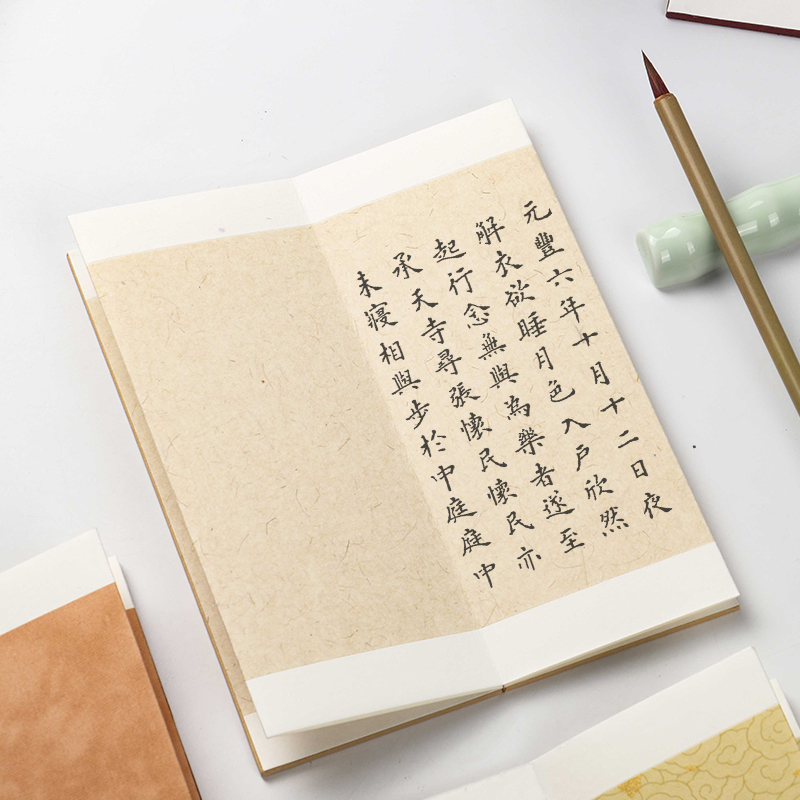 元豐六年十月十二日夜
解衣欲睡月色入戶欣然
起行念無與為樂者遂至
承天寺尋張懷民懷民亦
未寢相與步於中庭庭中